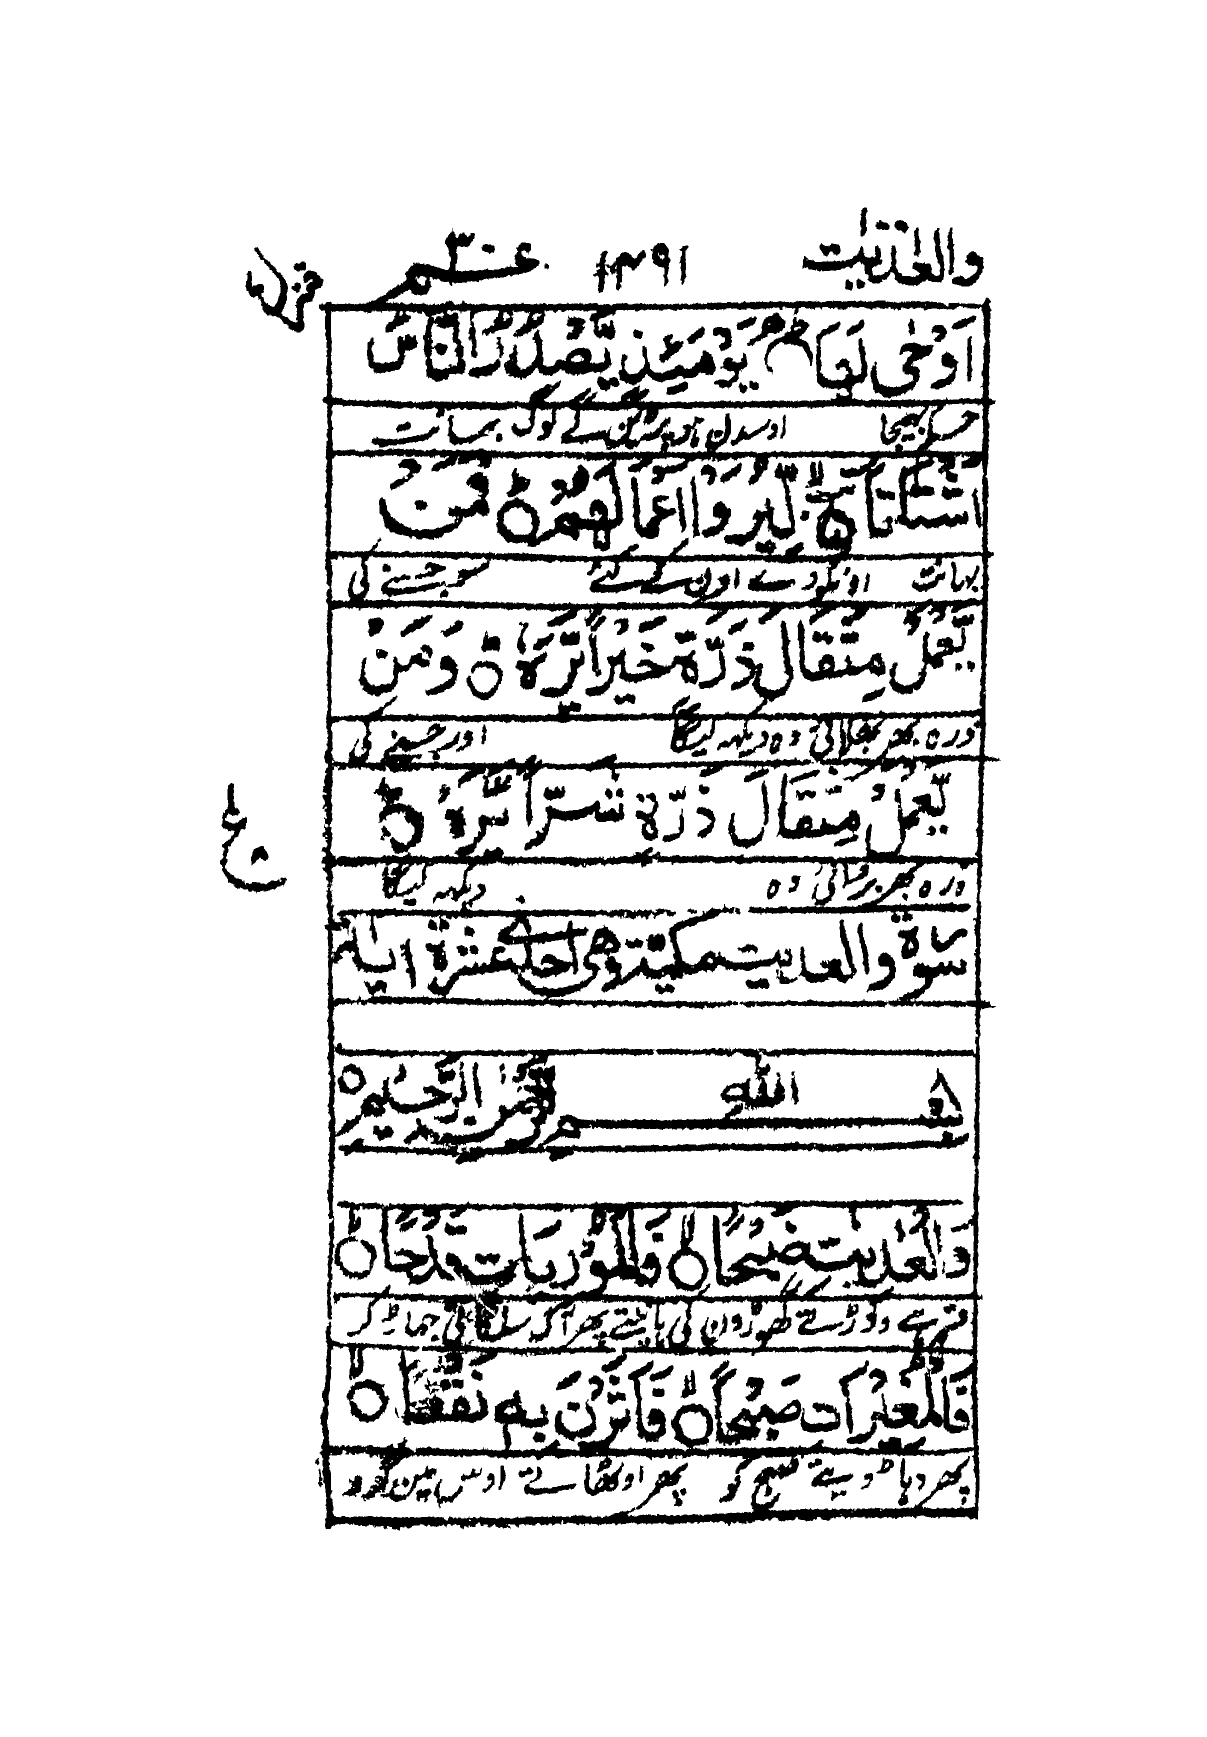 والعٰدیٰت ۱۴۹۱ عمّ ۳۰ منزل
اَوْحٰی لَهَا یَوْمَئِذٍ یَّصْدُرُ النَّاسُ
حکم بھیجا اوسدن ہو پڑینگے لوگ بھانت
اَشْتَاتًا لِّیُرَوْا اَعْمَالَهُمْ فَمَنْ
بھانت اونکو دے اون کے کئے سو جسنے کی
یَّعْمَلْ مِثْقَالَ ذَرَّةٍ خَیْرًا یَّرَهٗ وَمَنْ
ذرہ بھر بھلائی وہ دیکھہ لیگا اور جسنے کی
یَّعْمَلْ مِثْقَالَ ذَرَّةٍ شَرًّا یَّرَهٗ
ع
ذرہ بھر برائی وہ دیکھہ لیگا
سورة والعدیت مکیة وهی احدی عشرة ایة
بسم اللّٰه الرَّحْمٰنِ الرَّحِیْمِ
وَالْعٰدِیٰتِ ضَبْحًا فَالْمُوْرِیَاتِ قَدْحًا
قسم ہے دوڑتے گھوڑون کی ہانپتے پھر آگ سلگاتے جھاڑ کر
فَالْمُغِیْرَاتِ صُبْحًا فَاَثَرْنَ بِهٖ نَقْعًا
پھر دہاڑ دیتے صبح کو پھر اوٹھاتے اوس مین گرد